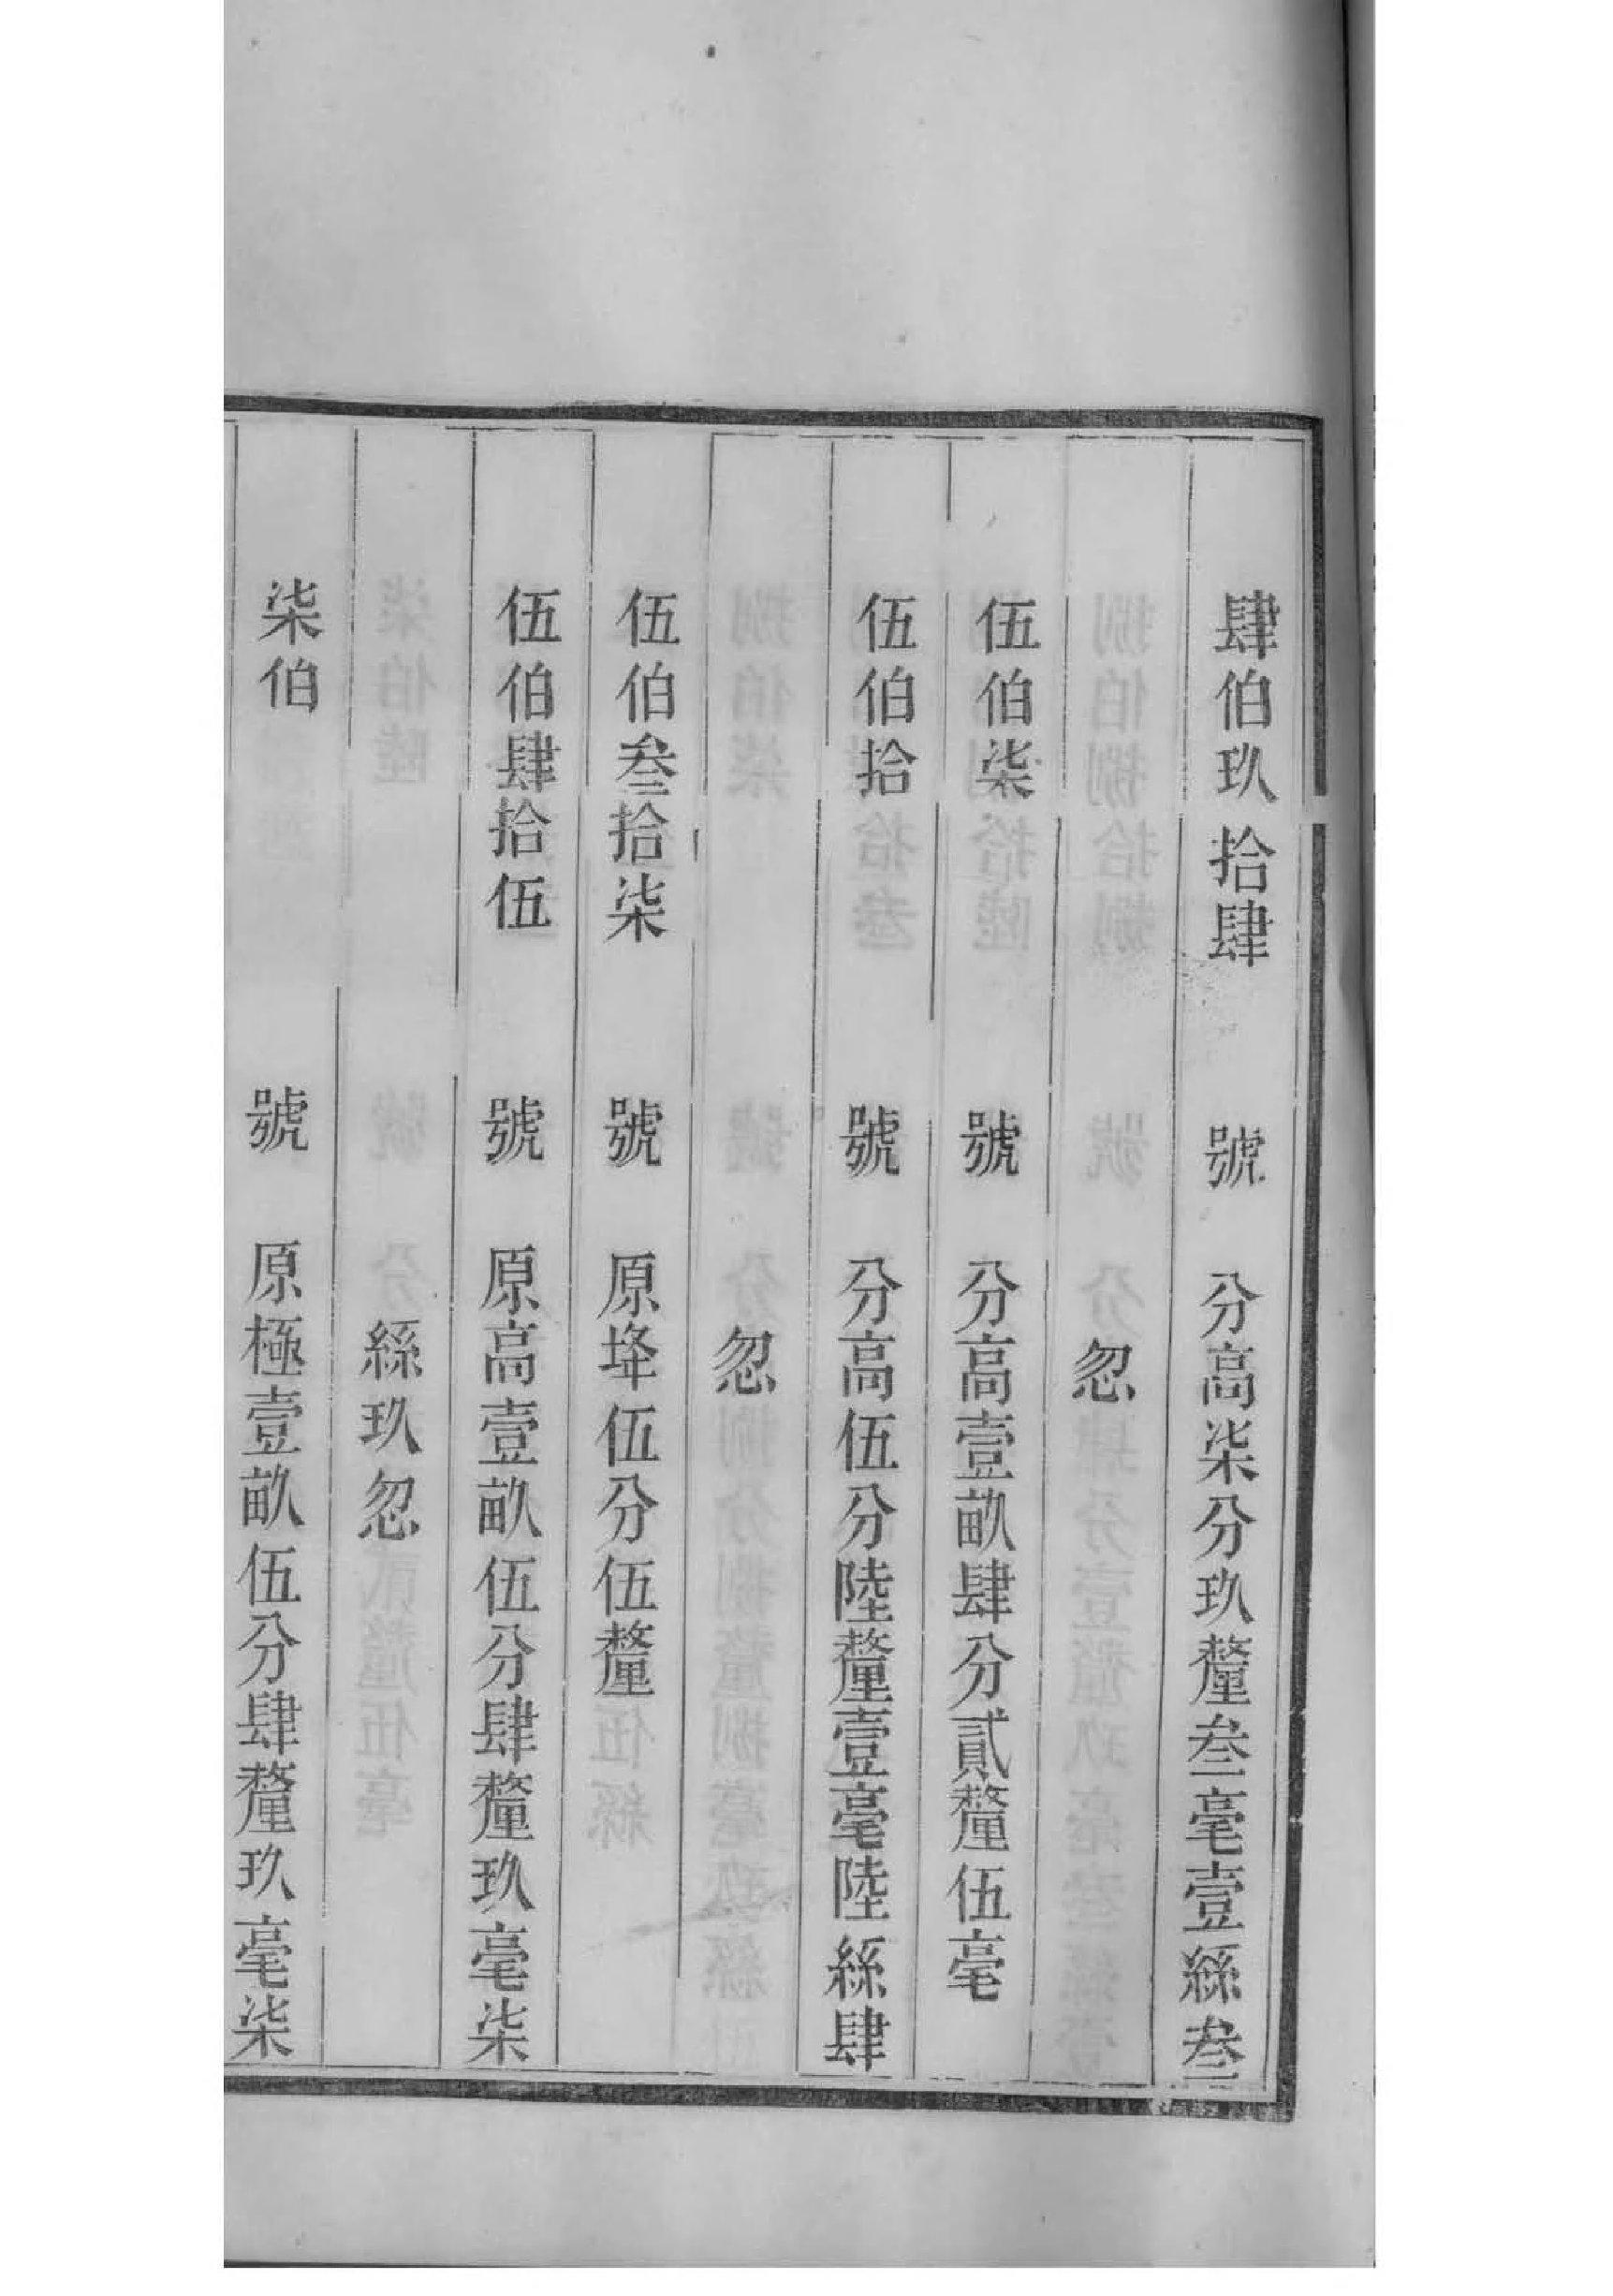 肆伯玖拾肆　號　分高柒分玖釐叁毫壹絲叁
忽
伍伯柒　號　分高壹畝肆分貳釐伍毫
伍伯拾　號　分高伍分陸釐壹毫陸絲肆
忽
伍伯叁拾柒　號　原埄伍分伍釐
伍伯肆拾伍　號　原高壹畝伍分肆釐玖毫柒
絲玖忽
柒伯　號　原極壹畝伍分肆釐玖毫柒